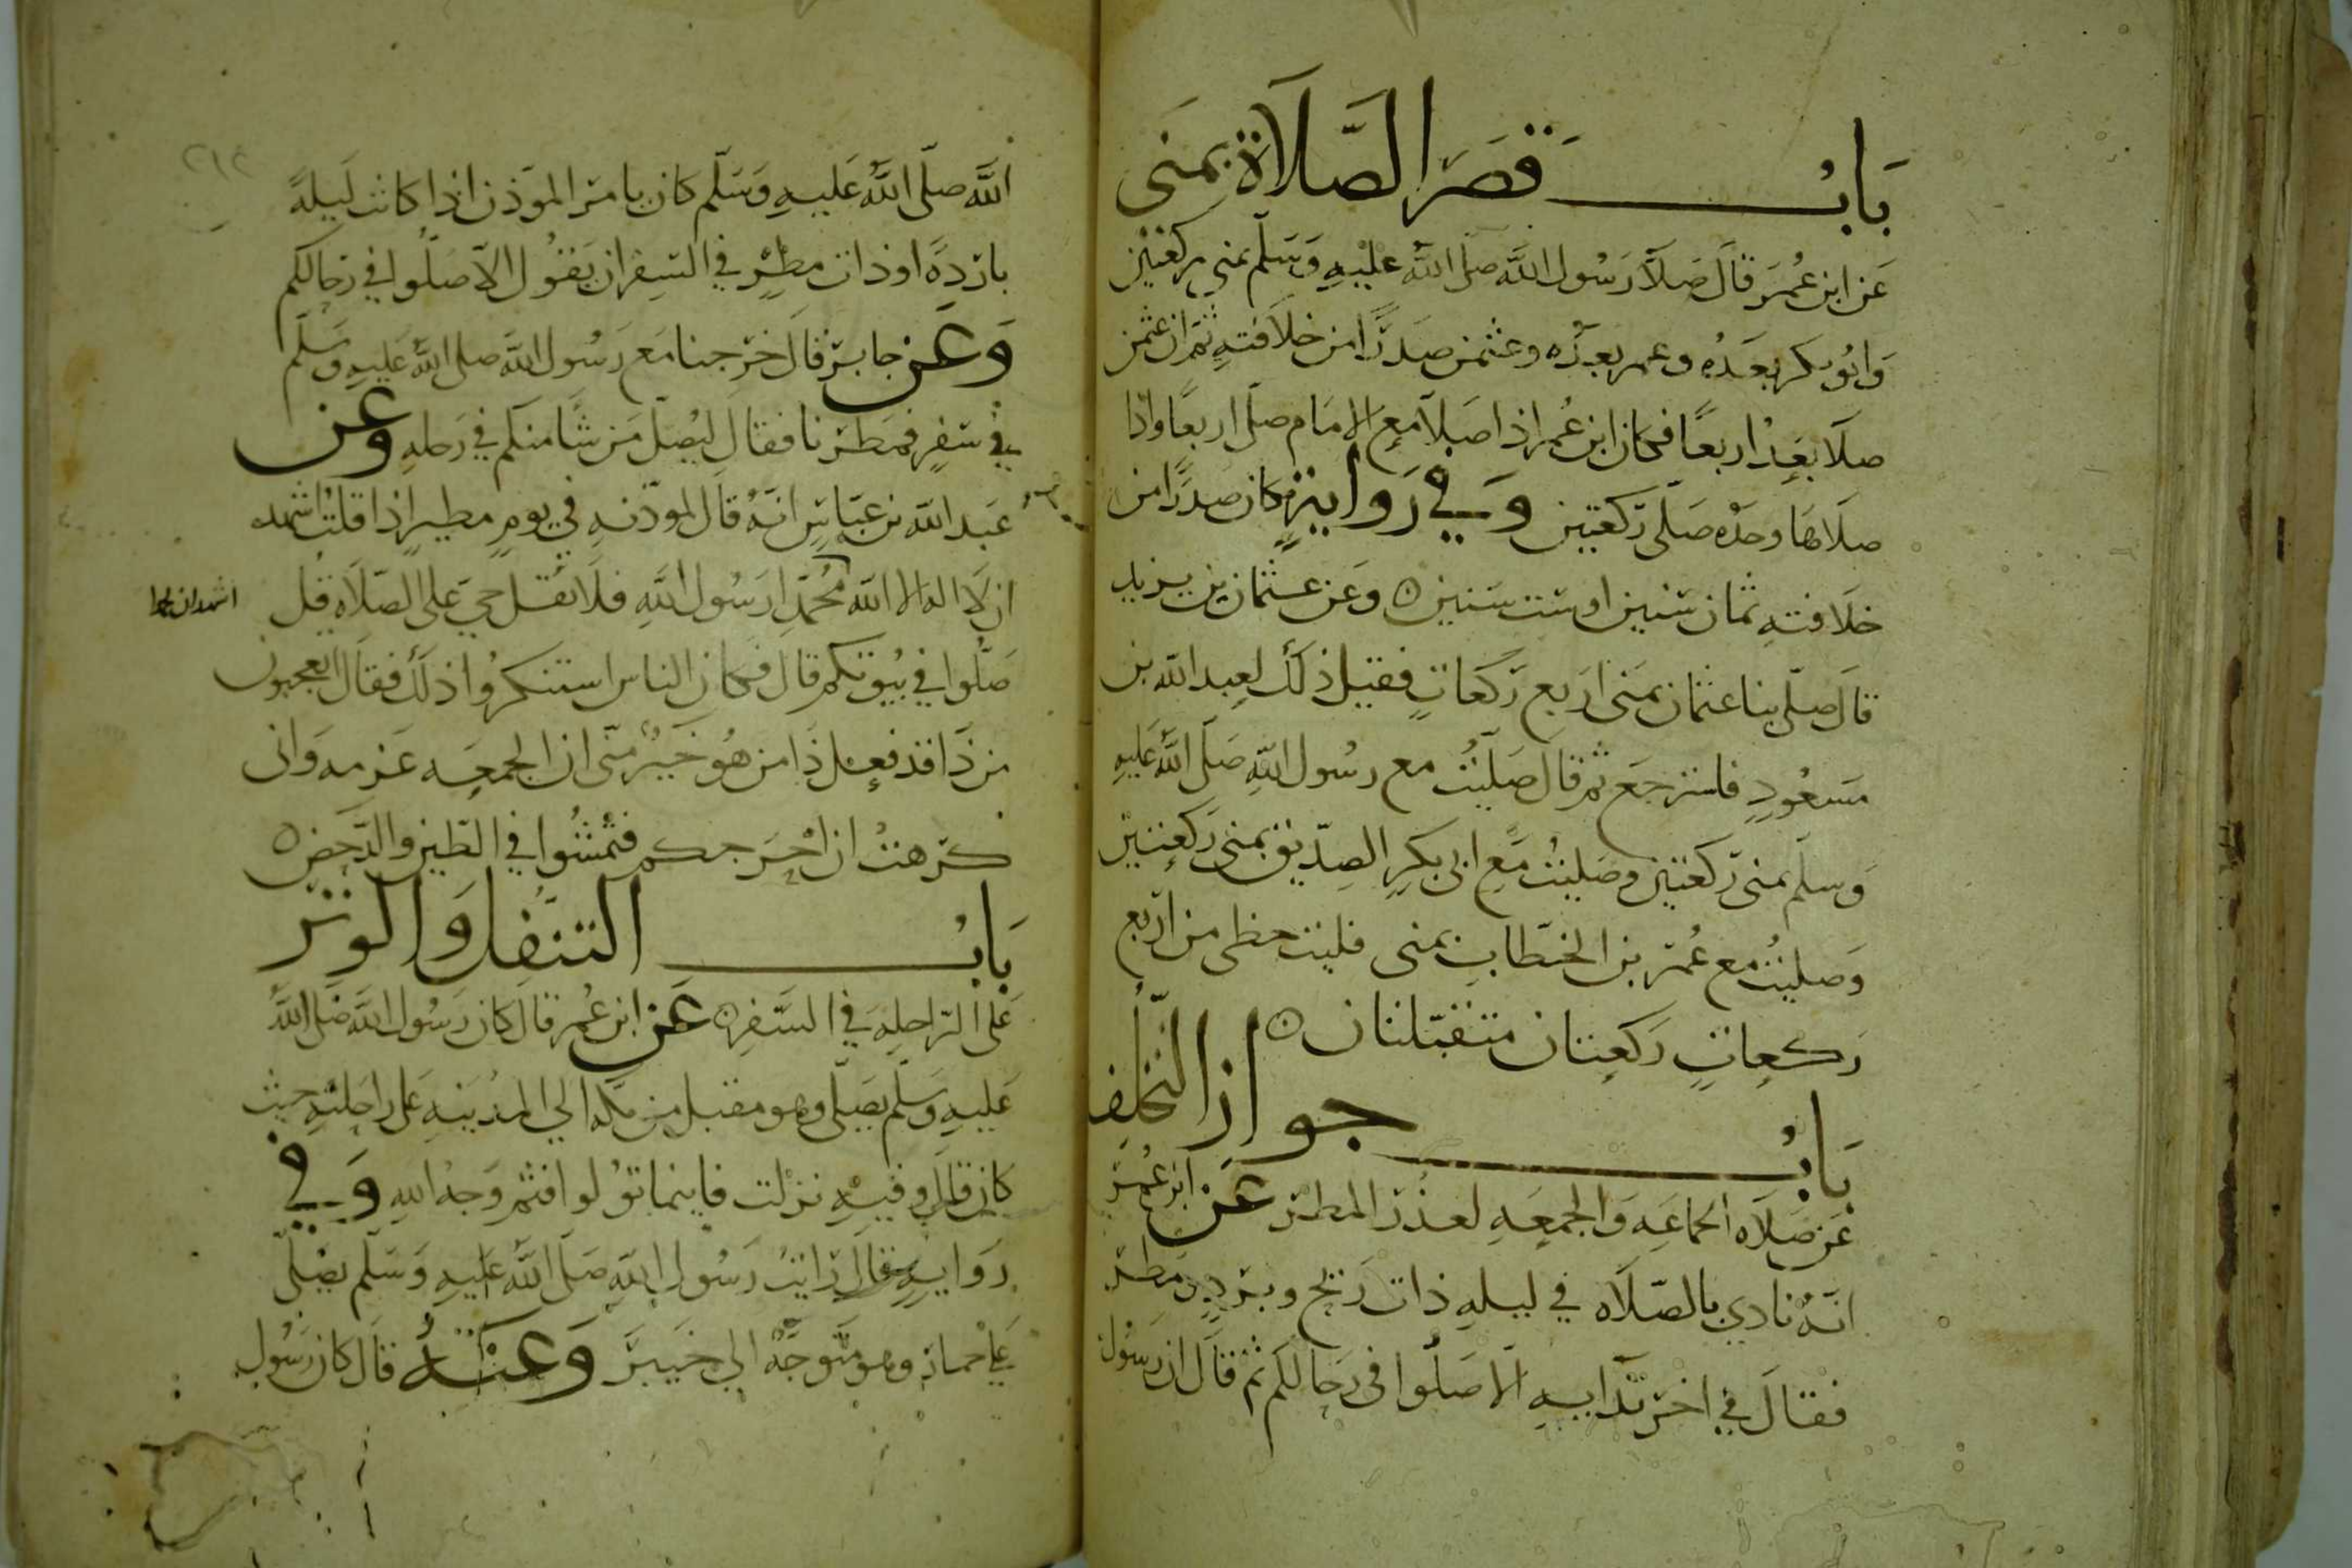 بَابُ قصَر الصَّلَاة بمنَى
عَن ابن عُمَرَ قالَ صَلَّا رَسُول اللَّه صلى اللَّه عليْهِ وَسَلّم بمنى ركعَتيْن
وَابُو بكر بعَدُه وعمر بعدُه وعثمن صَدرًا من خلاَفتهِ ثمّ ان عثمن
صلَا بعدُ اربعًا فكان ابن عُمر اذا صَلا مع الامَام صلّى اربعًا واذا
صلَاهَا وحدْه صَلّى ركعتين وَفي رَوايةٍ كان صدرًا من
خلَافتهِ ثمان سنين او ست سَنين ه وعَن عثمان بن يزيد
قالَ صلّى بنا عثمان بمنى اربع ركعاتٍ فقيل ذلك لعبد الله بن
مَسعُودٍ فاسترجَع ثم قال صَليْتُ مع رسُول اللَّهِ صَلّى اللَّه عَليهِ
وَسلّم بمنى ركعتين وصَليتُ مَع ابى بكرٍ الصِدّيق بمنى رَكعتيْن
وَصليْتُ مع عُمر بن الخطاب بمنى فليت حظى من اربَع
رَكعاتٍ ركعتان متقبّلتان ه
بَابُ جوازِ التّخلّف
عَن صَلاَه الجماعَه وَالجمعَهِ لعذر المطر عَن ابن عُمَر
انّهُ نادي بالصّلاَه في ليلهِ ذات رَيح وبردٍ ومَطر
فقالَ في اخر ندَايهِ الَا صَلُّوا فى رحَالكم ثم قالَ ان رَسُول
٢١٢
اللَّه صلّى اللَّهُ عَليهِ وَسَلّم كان يامر الموَذن اذا كانت لَيلةً
بارَدِةً او ذات مطرٍ في السفر ان يَقوُل الَا صَلّوا في رحَالكم
وَعَن جابر قالَ خرَجنا مَع رَسُول اللَّه صلى اللَّهُ عَليهِ وسَلّم
في سَفرٍ فمَطرنا فقال ليُصلّ مَن شَا منكم في رَحلهِ وعن
عَبد الله بن عبّاسٍ انّهُ قالَ لموذّنهِ في يومٍ مطيرٍ اذا قلت اشهد
ان لَا اله الا الله مُحَمّدًا رَسُول اللَّهِ فلَا تقل حيّ على الصَّلَاه قل
صَلّوا في بيُوتكم قال فكان الناس استنكرُوا ذلك فقالَ اتعجبون
من ذَا قد فعل ذَا من هُو خَيرٌ منّى ان الجمعَه عَزمه وَانى
كرَهتُ ان اُخرَجكم فتمشُوا في الطين والدَّحَض ه
بَابُ التنَفل وَالوتر
عَلى الرّاحلِه في السَّفر ه عَن ابن عُمر قالَ كان رَسُول اللَّه صَلى اللَّه
عَليهِ وَسَلّم يصَلّى وهو مقبل من مكه الي المدينهِ عَلى رَاحلتهِ حيث
كان قالَ وفيهِ نزلت فاينما توُلوا فثم وَجهُ اللهِ وَفي
رَوايهٍ قالَ رايتُ رَسُول اللَّهِ صَلى اللَّهُ عَليهِ وَسَلّم يصَلّى
عَلى حمارٍ وهو متَوجّهٌ الي خيبرَ وَعنهُ قالَ كان رَسُول